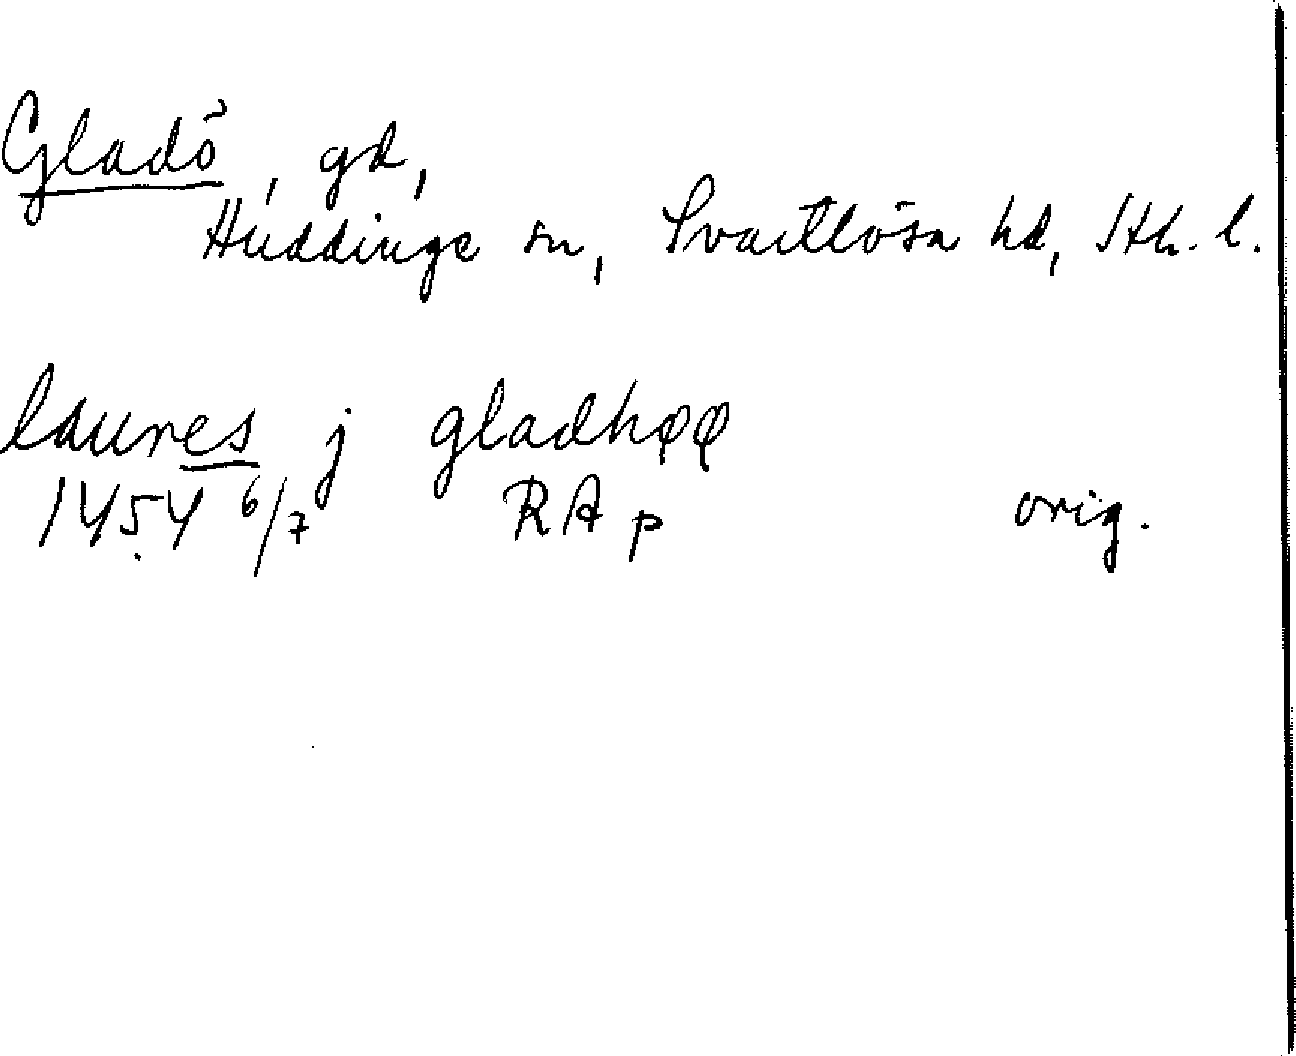 Gladö, gd,
Huddinge sn, Svartlösa hd, Sth. l.
laurnes j gladhøø
1454 6/7 RA p orig.